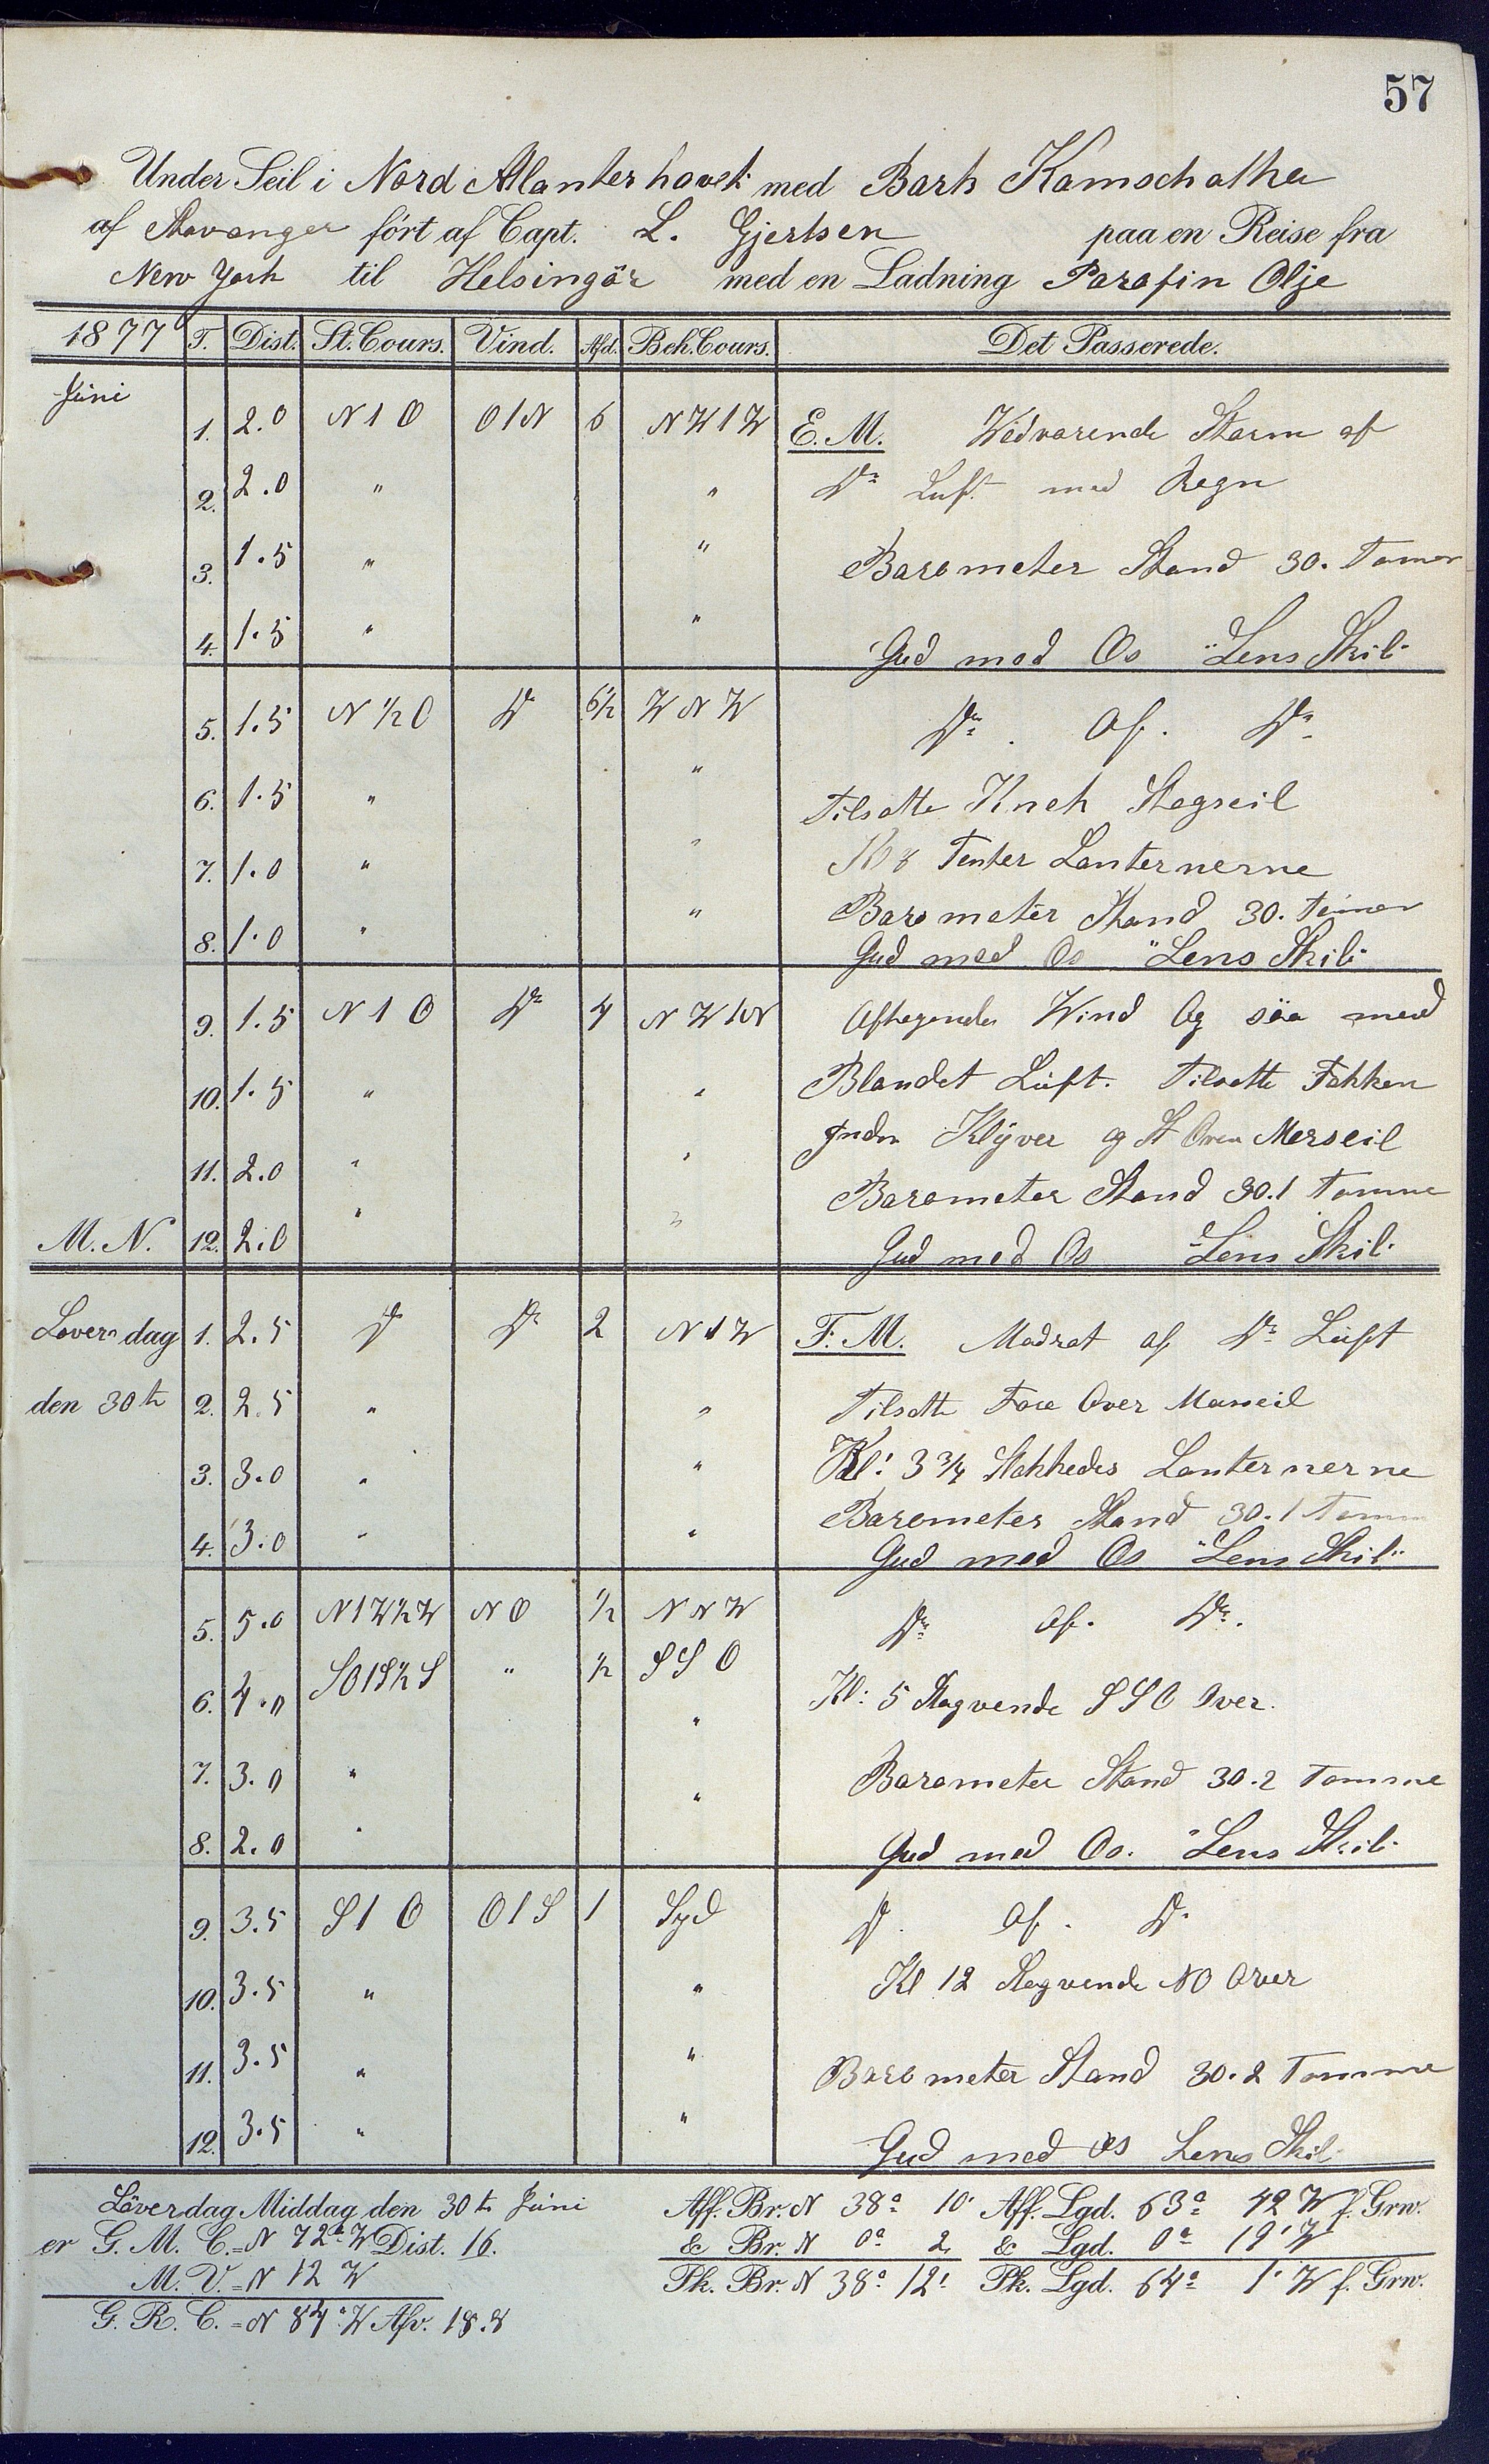 57
Under Seil i Nord Atlanterhavet med Bark Kamschatka
af Stavanger ført af Capt. L. Gjertsen paa en Reise fra
New York til Helsingör med en Ladning Parafin Olje
1877 T. Dist. St. Cours. Vind. Afd. Beh. Cours. Det Passerede.
Juni
1. 2.0 N 1 O O 1 N 6 N W 1 W E. M. Wedvarende Storm af
2. 2.0 " " Do Luft med Regn
3. 1.5 " " Barometer Stand 30. Tommer
4. 1.5 " " Gud med Os "Lens Skib"
5. 1.5 N ½ O Do 6½ W N W Do. Af. Do
6. 1.5 " " Tilsatte Knek Stagseil
7. 1.0 " " Kl 8 Tenter Lanternerne
Barometer Stand 30. Tommer
8. 1.0 " " Gud med Os "Lens Skib"
9. 1.5 N 1 O Do 4 N W 1 N Aftagende Wind Og söe med
10. 1.5 " " Blandet Luft. Tilsatte Fokken
Inder Klyver og St Over Merseil
11. 2.0 " " Barometer Stand 30.1 Tomme
M. N. 12. 2.0 " " Gud med Os "Lens Skib"
Loverdag 1. 2.5 Do Do 2 N 1 W F. M. Madrat af Do Luft
den 30te 2. 2.5 " " Tilsatte Fore Over Merseil
3. 3.0 " " Kl: 3 3/4 Slokkedes Lanternerne
Barometer Stand 30.1 Tomm
4. 3.0 " " Gud med Os "Lens Skib"
5. 5.0 N1W½W N O ½ N N W Do Af. Do.
6. 4.0 SO1S½S " ½ S S O Kl: 5 Stagvende S S O Over.
7. 3.0 " " Barometer Stand 30.2 Tomme
8. 2.0 " " Gud med Os. "Lens Skib"
9. 3.5 S 1 O O 1 S 1 Syd Do. Af. Do
10. 3.5 " " Kl 12 Stagvende NO Over
11. 3.5 " " Barometer Stand 30.2 Tomme
12. 3.5 " " Gud med os Lens Skib
Löverdag Middag den 30te Juni Aff. Br. N 38° 10' Aff. Lgd. 63° 42 W f. Grw.
er G. M. C. = N 72° W Dist. 16. & Br. N 0° 2 & Lgd. 0° 19' W
M. V. = N 12 W Pk. Br. N 38° 12' Pk. Lgd. 64° 1' W f. Grw.
G. R. C. = N 84° W Afv. 18.8